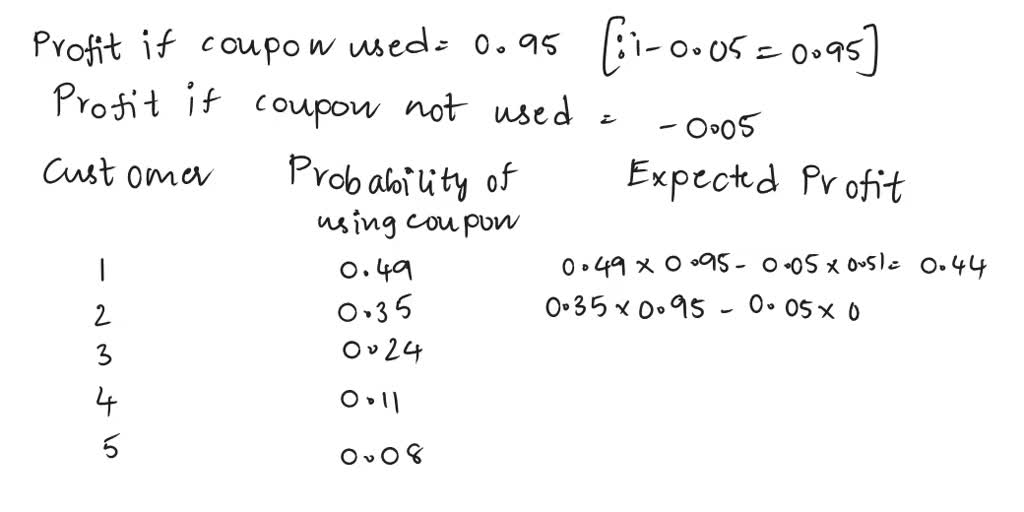 Profit if coupon used = 0.95 [∵1-0.05 = 0.95]
Profit if coupon not used = -0.05
Customer Probability of using coupon Expected Profit
1 0.49 0.49 x 0.95 - 0.05 x 0.51 = 0.44
2 0.35 0.35 x 0.95 - 0.05 x 0
3 0.24
4 0.11
5 0.08